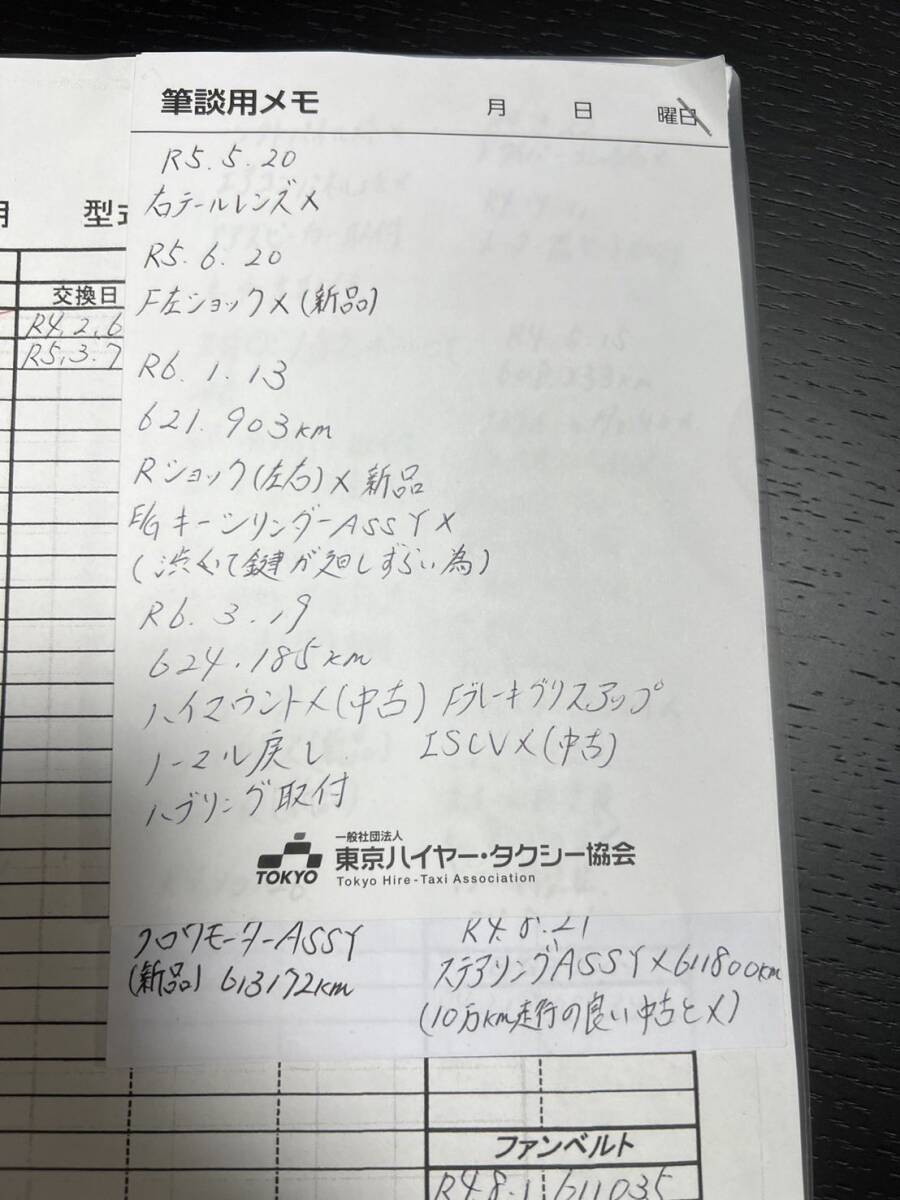 筆談用メモ 月 日 曜日
R5.5.20
右テールレンズメ
R5.6.20
F左ショックメ(新品)
R6.1.13
621.903km
Rショック(左右)メ新品
E/Gキーシリンダー ASSYメ
(渋くて鍵が廻しずらい為)
R6.3.19
624.185km
ハイマウントメ(中古) Fブレーキグリスアップ
ノーマル戻し ISCVメ(中古)
ハブリング取付
一般社団法人
TOKYO 東京ハイヤー・タクシー協会
Tokyo Hire-Taxi Association
型式
交換日
R4.2.6
R5.3.7
ブロワモーターASSY
(新品) 613172km
R4.8.21
ステアリングASSYメ611800km
(10万km走行の良い中古とメ)
ファンベルト
R4.8.1 611035